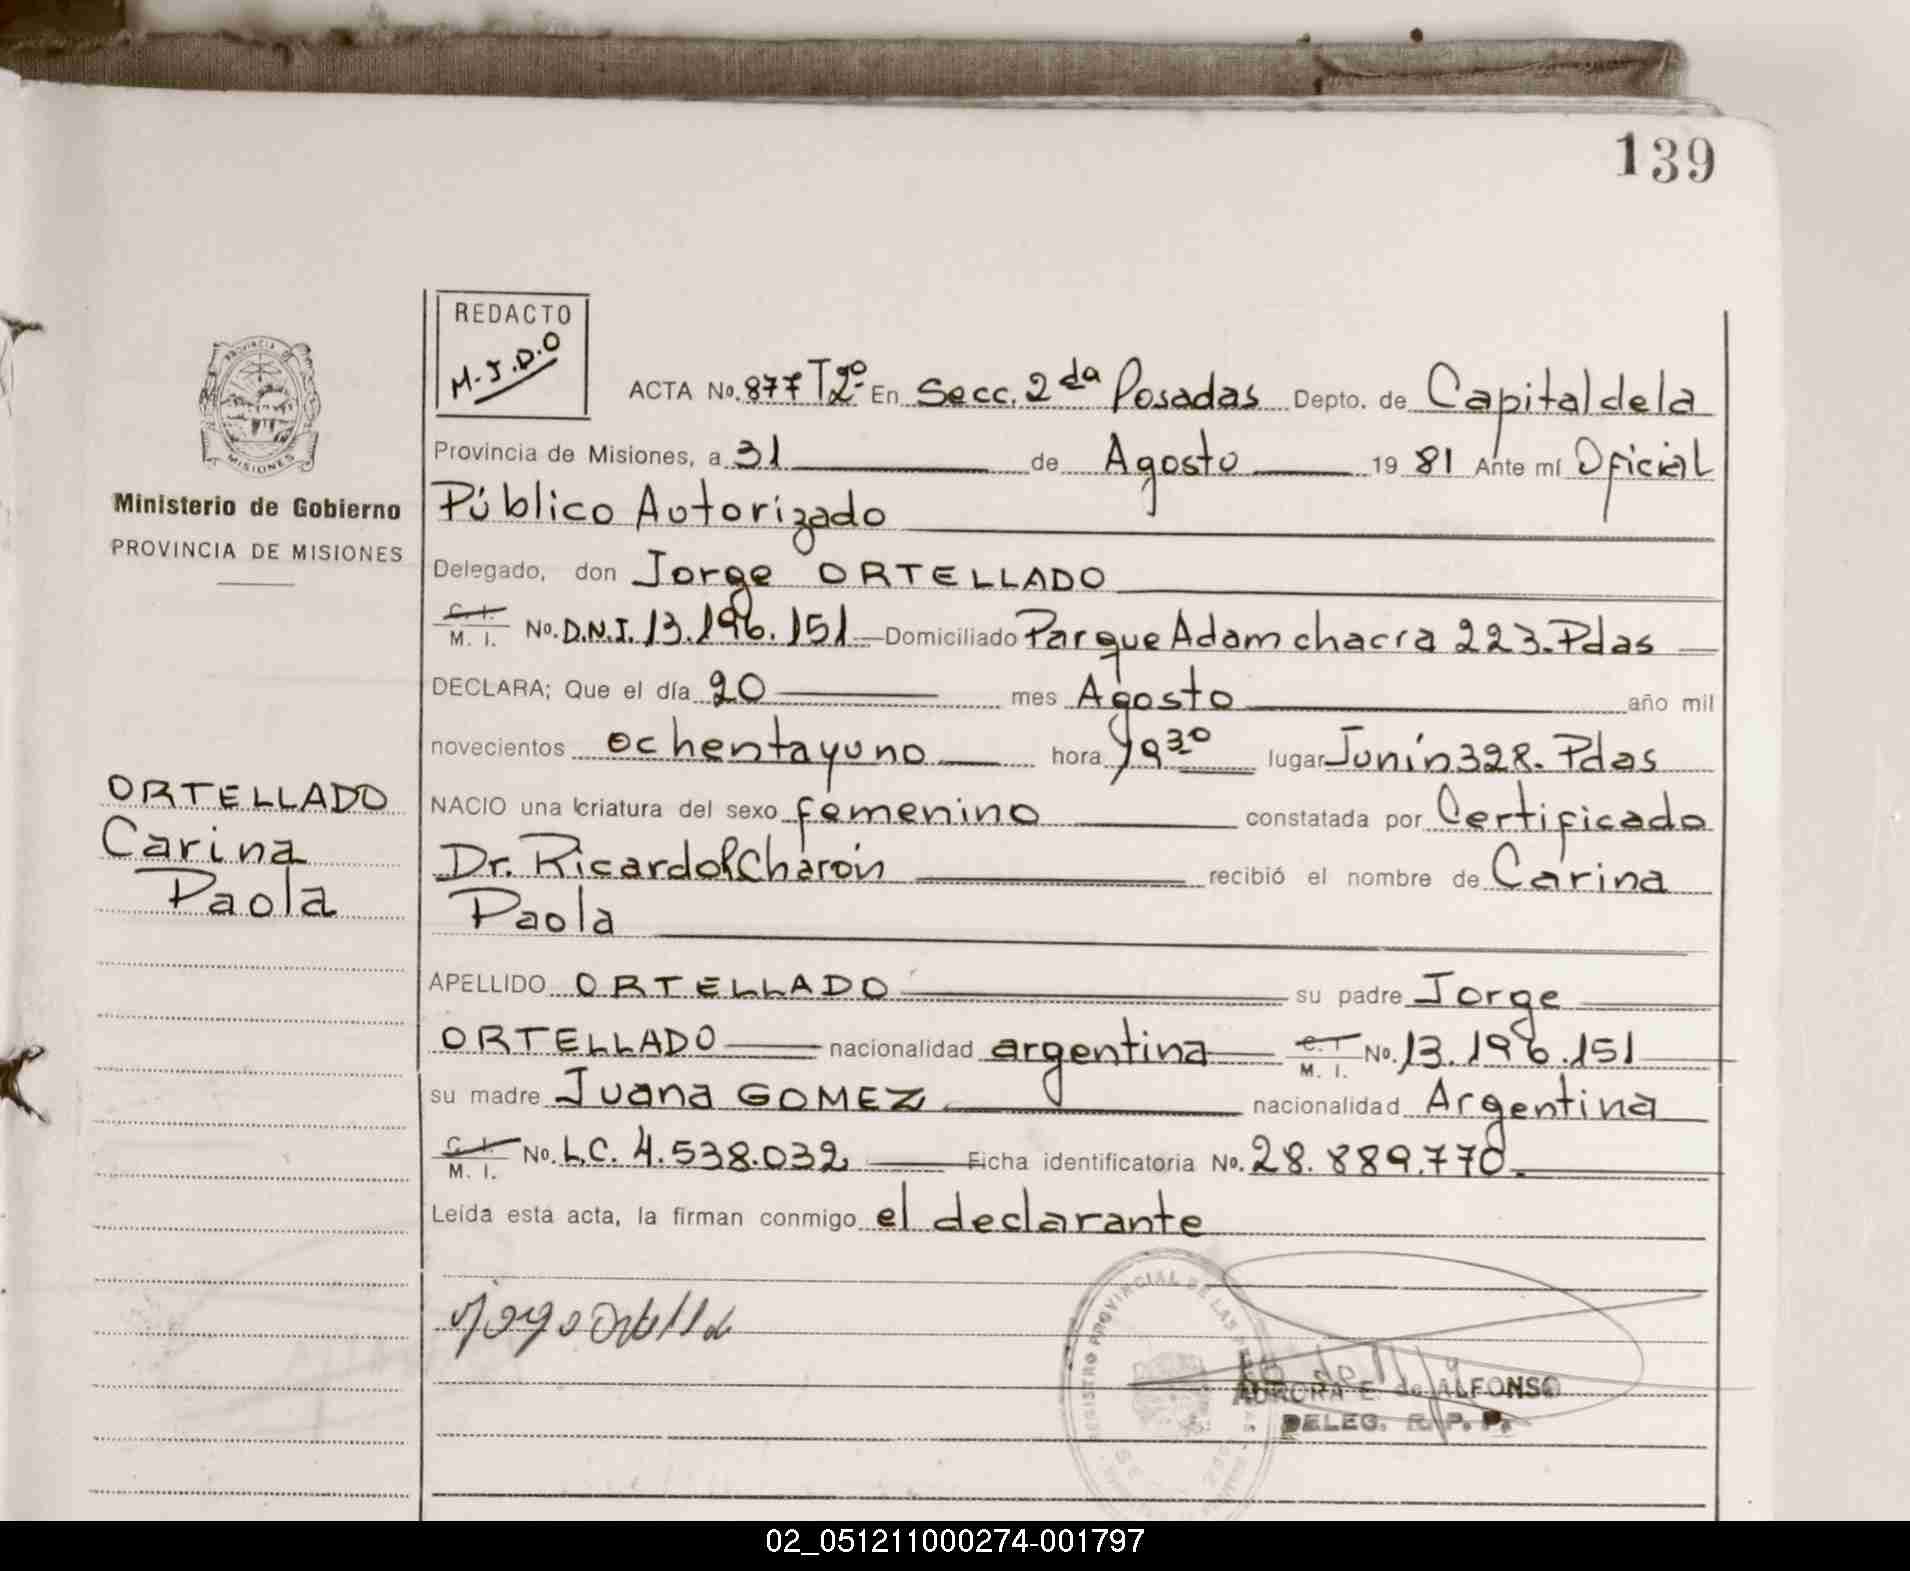 139
REDACTO
M.J.D.O
PROVINCIA DE
MISIONES
Ministerio de Gobierno
PROVINCIA DE MISIONES
ACTA No. 877 T2º En Secc. 2da Posadas Depto. de Capital de la
Provincia de Misiones, a 31 de Agosto 19 81 Ante mí Oficial
Público Autorizado
Delegado, don Jorge ORTELLADO
C. I.
M. I. No. D.N.I. 13.196.151 Domiciliado Parque Adam chacra 223. Pdas
DECLARA; Que el día 20 mes Agosto año mil
novecientos ochentayuno hora 1930 lugar Junín 328. Pdas
ORTELLADO
Carina
Paola
NACIO una criatura del sexo femenino constatada por Certificado
Dr. Ricardo Charón recibió el nombre de Carina
Paola
APELLIDO ORTELLADO su padre Jorge
ORTELLADO nacionalidad argentina C. I. M. I. No. 13.196.151
su madre Juana GOMEZ nacionalidad Argentina
C. I.
M. I. No. L.C. 4.538.032 Ficha identificatoria No. 28.889.770
Leída esta acta, la firman conmigo el declarante
REGISTRO PROVINCIAL DE LAS
AURORA E. de ALFONSO
DELEG. R. P. P.
02_051211000274-001797